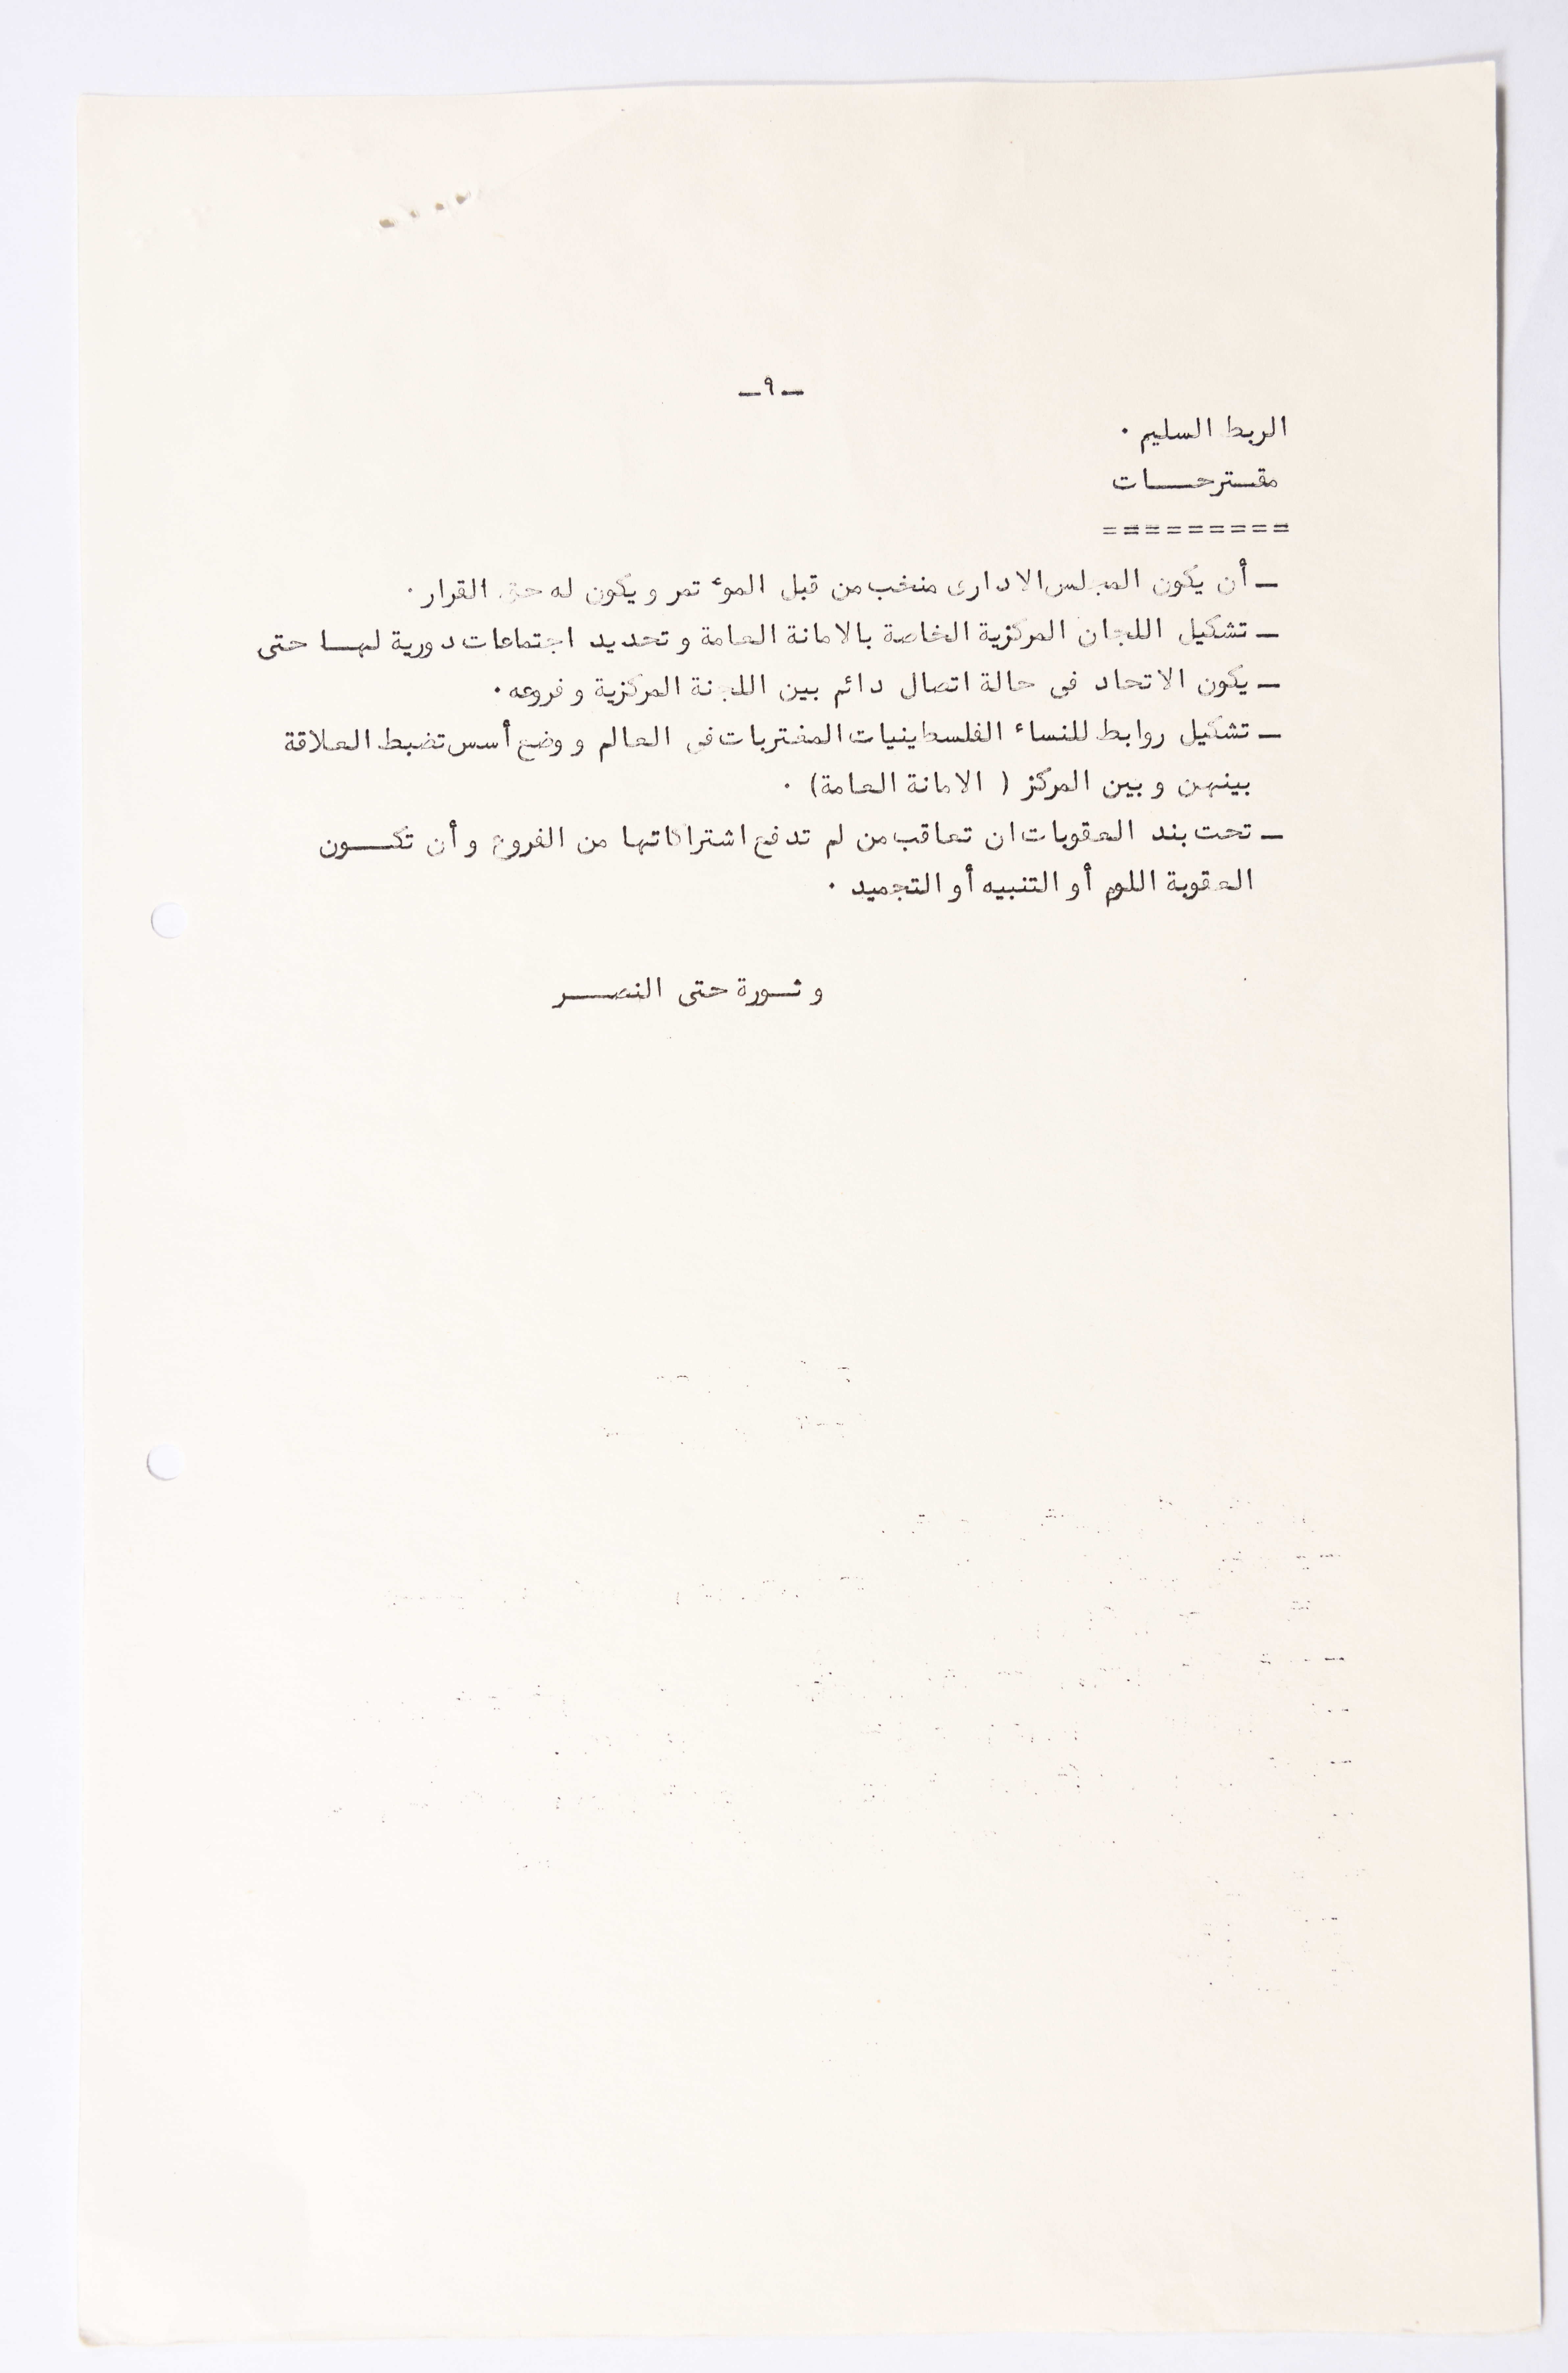 ـ٩ـ
الربط السليم .
مقـترحـــات
=========
ـ أن يكون المجلس الادارى منخب من قبل الموٴتمر ويكون له حق القرار .
ـ تشكيل اللجان المركزية الخاصة بالامانة العامة وتحديد اجتماعات دورية لهــا حتى
ـ يكون الاتحاد فى حالة اتصال دائم بين اللجنة المركزية وفروعه .
ـ تشكيل روابط للنساء الفلسطينيات المغتربات فى العالم ووضع أسس تضبط العلاقة
بينهن وبين المركز ( الامانة العامة) .
ـ تحت بند العقوبات ان تعاقب من لم تدفع اشتراكاتها من الفروع وأن تكـــون
العقوبة اللوم أو التنبيه أو التجميد .
وثــورة حتى النصـــر